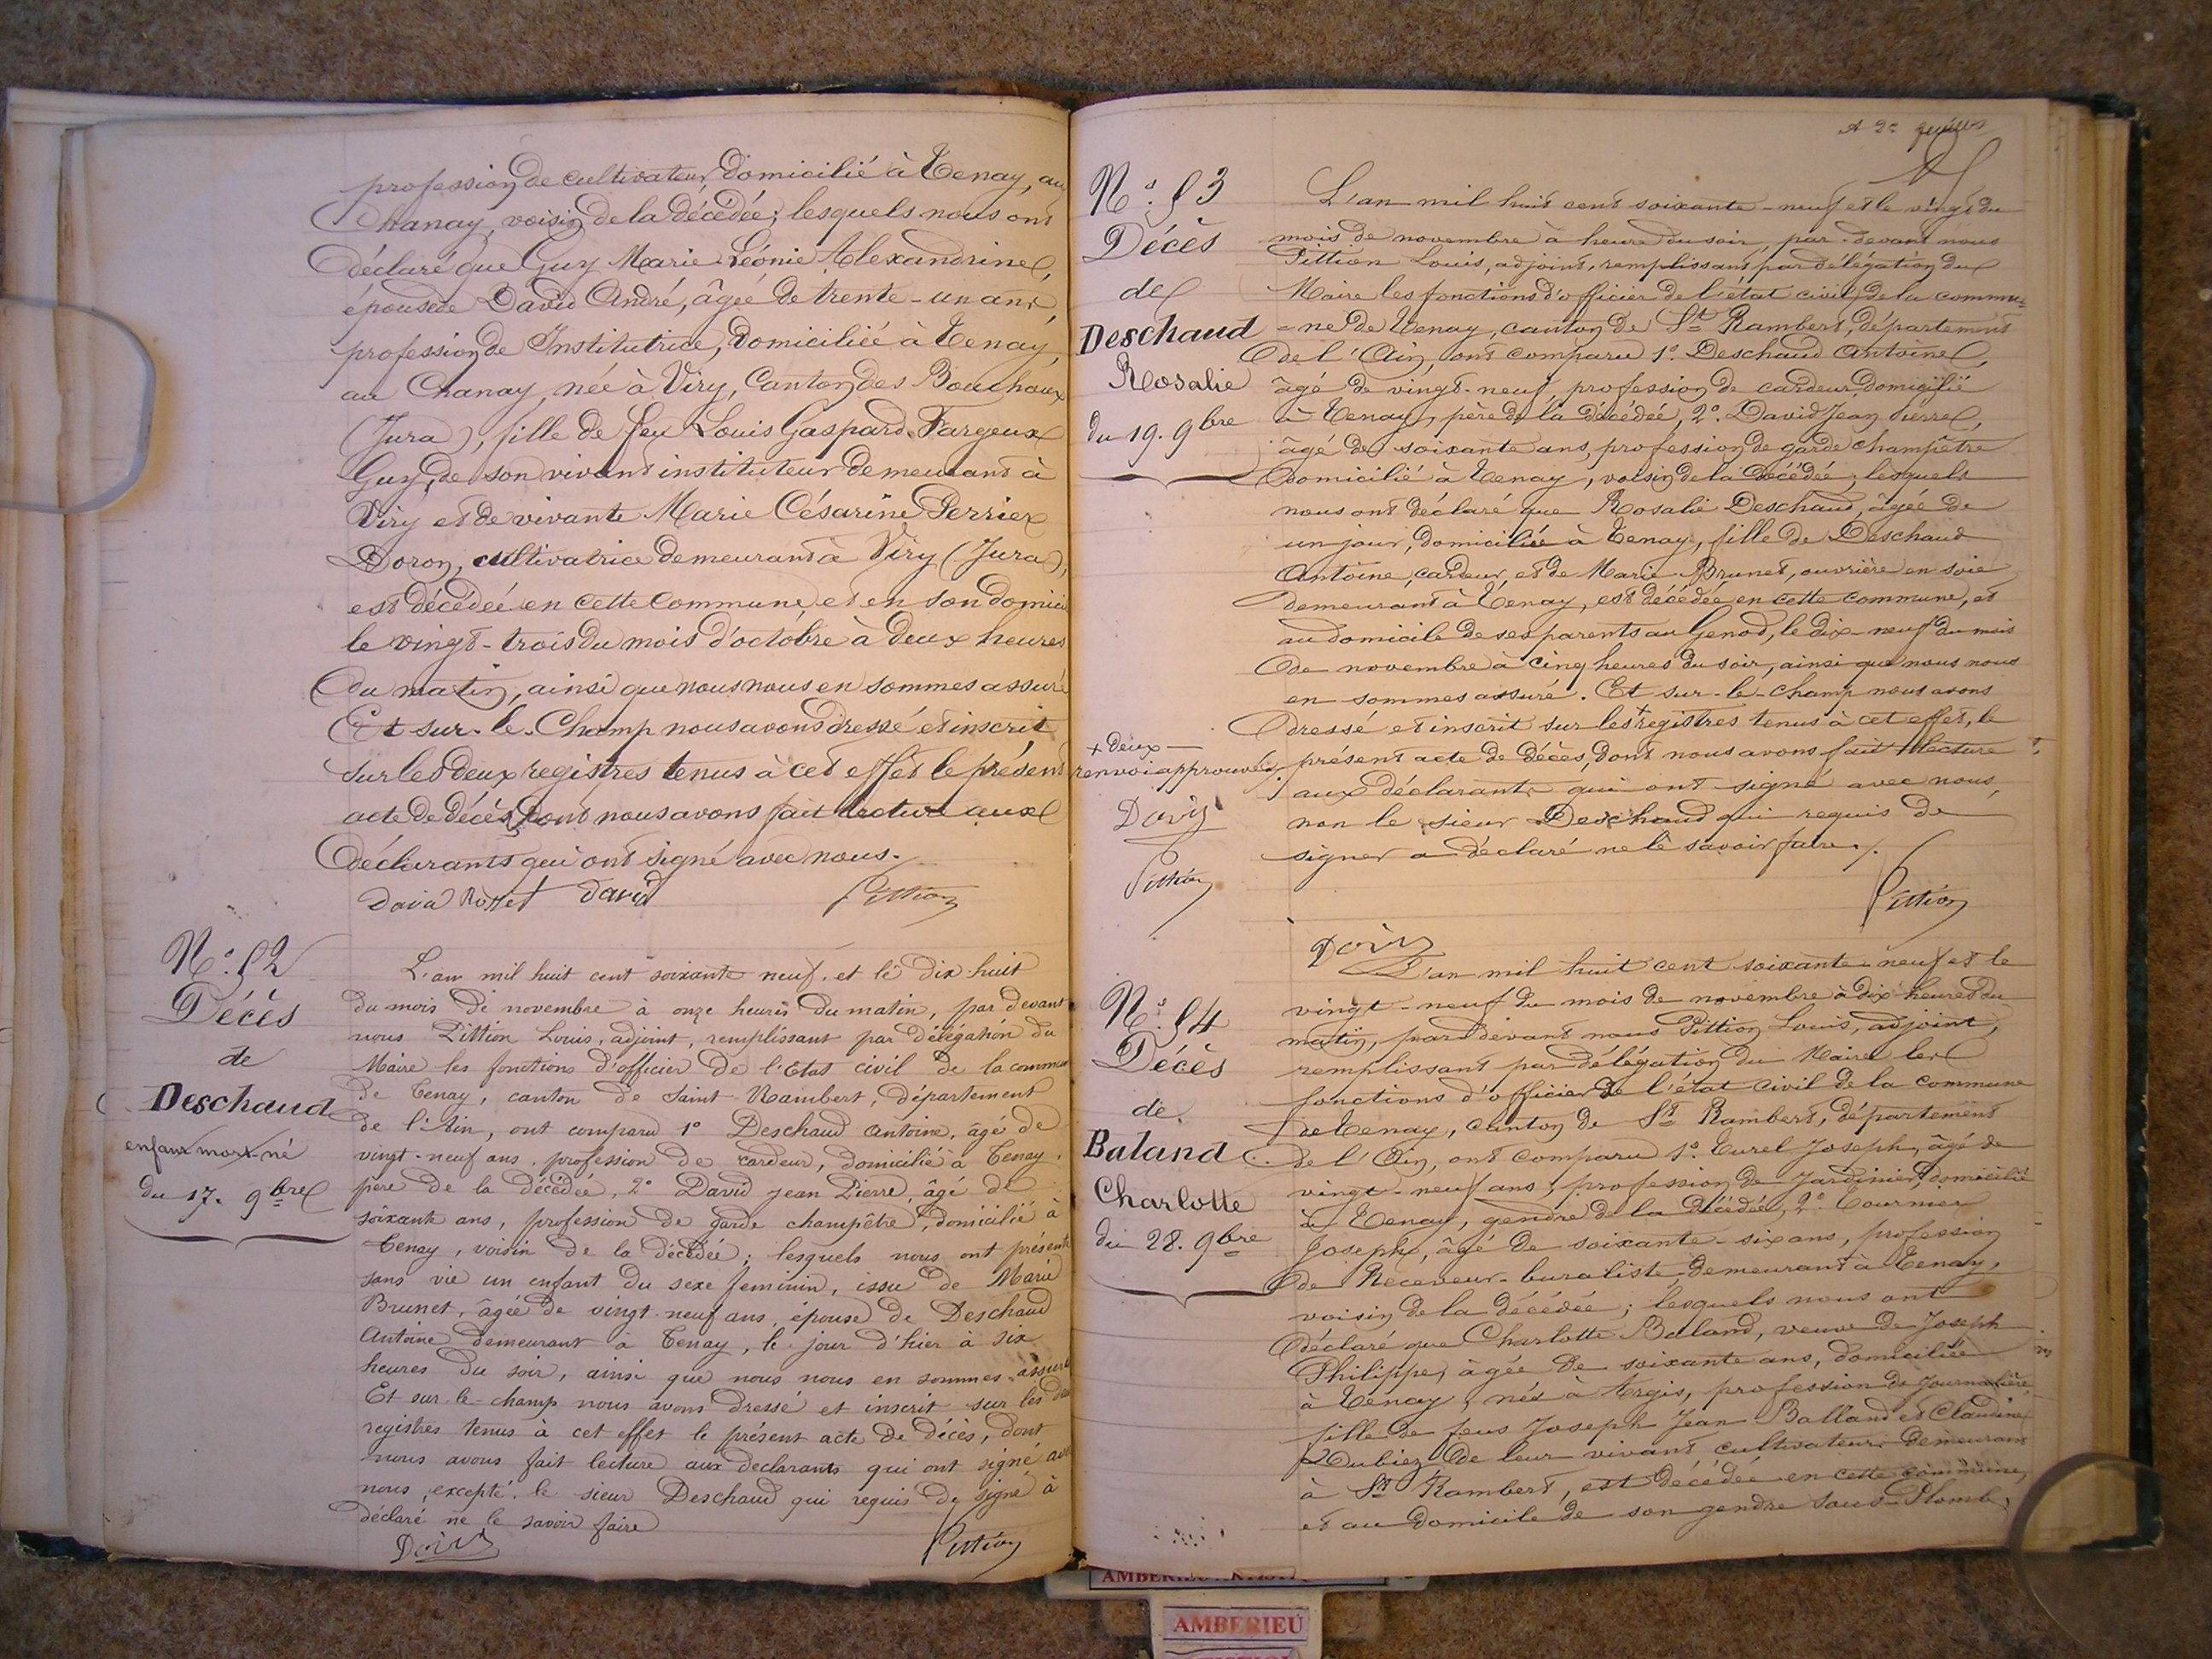 profession de cultivateur, domicilié à Tenay, au
Chanay, voisin de la décédée; lesquels nous ont
déclaré que Guy Marie Léonie Alexandrine,
épouse de David André, âgée de trente-un ans,
profession de Institutrice, domiciliée à Tenay,
au Chanay, née à Viry, Canton des Bouchoux
(Jura), fille de feu Louis Gaspard Fargeux
Guy, de son vivant instituteur demeurant à
Viry et de vivante Marie Césarine Perrier
Doron, cultivatrice demeurant à Viry (Jura),
est décédée en cette Commune, et en son domici
le vingt-trois du mois d'octobre à deux heures
du matin, ainsi que nous nous en sommes assuré
Et sur-le-Champ nous avons dressé et inscrit
sur les deux registres tenus à cet effet le présent
acte de décès, dont nous avons fait lecture aux
déclarants qui ont signé avec nous.
David David Pittion
N° 52
Décès
de
Deschaud
enfant mort-né
du 17. 9bre
L'an mil huit cent soixante neuf et le dix huit
du mois de novembre à onze heures du matin, par devant
nous Pittion Louis, adjoint, remplissant par délégation du
Maire les fonctions d'officier de l'Etat civil de la commune
de Tenay, canton de Saint-Rambert, département
de l'Ain, ont comparu 1° Deschaud Antoine, âgé de
vingt-neuf ans, profession de cardeur, domicilié à Tenay,
père de la décédée, 2° David Jean Pierre, âgé de
soixante ans, profession de garde champêtre, domicilié à
Tenay, voisin de la décédée; lesquels nous ont présenté
sans vie un enfant du sexe feminin, issu de Marie
Brunet, âgée de vingt-neuf ans, épouse de Deschaud
Antoine demeurant à Tenay, le jour d'hier à six
heures du soir, ainsi que nous nous en sommes assuré
Et sur-le-champ nous avons dressé et inscrit sur les deux
registres tenus à cet effet le présent acte de décès, dont
nous avons fait lecture aux déclarants qui ont signé avec
nous, excepté le sieur Deschaud qui requis de signé à
déclaré ne le savoir faire
Pittion
N° 53
Décès
de
Deschaud
Rosalie
du 19. 9bre
L'an mil huit cent soixante-neuf et le vingt du
mois de novembre à heure du soir, par-devant nous
Pittion Louis, adjoint, remplissant par délégation du
Maire les fonctions d'officier de l'état civil de la commu-
=ne de Tenay, canton de St Rambert, département
de l'Ain, ont comparu 1° Deschaud Antoine,
âgé de vingt-neuf, profession de cardeur, domicilié
à Tenay, père de la décédée, 2° David Jean Pierre,
âgé de soixante ans, profession de garde champêtre
domicilié à Tenay, voisin de la décédée, lesquels
nous ont déclaré que Rosalie Deschaud, âgée de
un jour, domiciliée à Tenay, fille de Deschaud
Antoine, cardeur, et de Marie Brunet, ouvrière en soie
demeurant à Tenay, est décédée en cette commune, et
au domicile de ses parents au Genod, le dix-neuf du mois
de novembre à cinq heures du soir, ainsi que nous nous
en sommes assuré. Et sur-le-champ nous avons
dressé et inscrit sur les + registres tenus à cet effet, le
présent acte de décès, dont nous avons fait lecture
aux déclarants qui ont signé avec nous,
non le sieur Deschaud qui requis de
signer a déclaré ne le savoir faire.
+ deux
renvoi approuvé
Pittion
Pittion
N° 54
Décès
de
Baland
Charlotte
du 28. 9bre
L'an mil huit cent soixante-neuf et le
vingt-neuf du mois de novembre à dix heures du
matin, par devant nous Pittion Louis, adjoint,
remplissant par délégation du Maire les
fonctions d'officier de l'état civil de la commune
de Tenay, canton de St Rambert, département
de l'Ain, ont comparu 1° Turel Joseph, âgé de
vingt-neuf ans, profession de Jardinier, domicilié
à Tenay, gendre de la décédée, 2° Tournier
Joseph, âgé de soixante-six ans, profession
de Receveur-buraliste, demeurant à Tenay,
voisin de la décédée; lesquels nous ont
déclaré que Charlotte Balland, veuve de Joseph
Philippe, âgée de soixante ans, domiciliée
à Tenay, née à Argis, profession de Journalière,
fille de feus Joseph Jean Balland et Claudine
Dubiez de leur vivant cultivateurs demeurant
à St Rambert, est décédée en cette commune,
et au domicile de son gendre sous-Plomb,
AMBERIEU